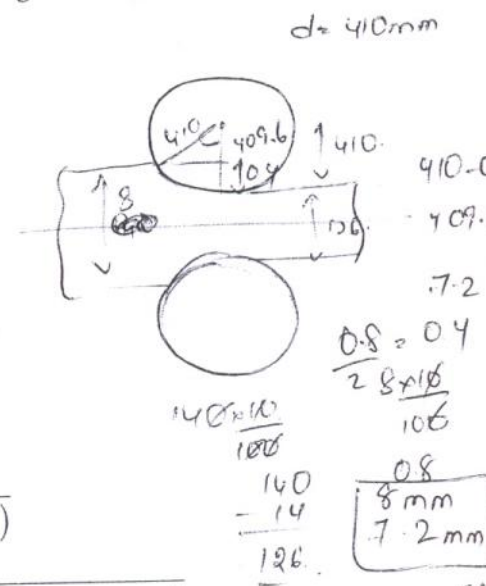 d= 410mm
410
409.6
0.4
410.
8
126.
410-0
409.
7.2
0.8 = 0.4
2
8×10
100
140×10
100
140
- 14
126.
0.8
8mm
7.2mm
)